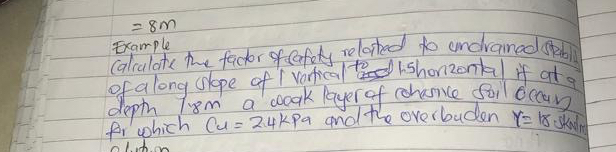 = 8m
Example
Calculate the factor of safety related to undrained
of a long slope of 1 vertical to 1.5 horizontal if at a
depth 1.8m a weak layer of cohesive soil occurs
for which Cu = 24kPa and the overbuden γ = 18.5kN/m